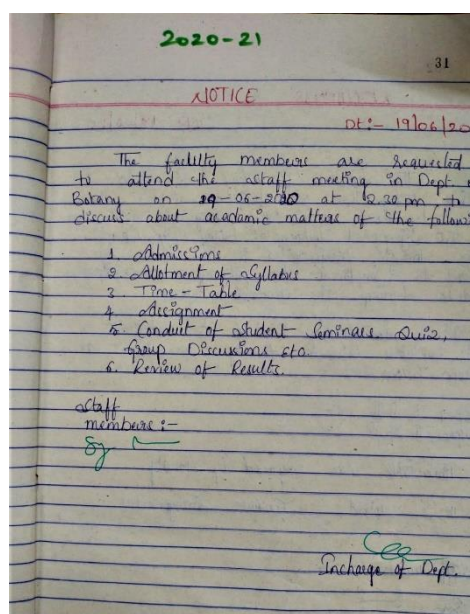 2020-21
31
NOTICE
Dt:- 19/06/20
The faculty members are requested
to attend the staff meeting in Dept
Botany on 19-06-2020 at 2.30 pm to
discuss about acadamic matters of the follow
1. Admissions
2. Allotment of Syllabus
3. Time-Table
4. Assignment
5. Conduit of student Seminars Quiz,
Group Discussions etc.
6. Review of Results.
Staff
members:-
Incharge of Dept.